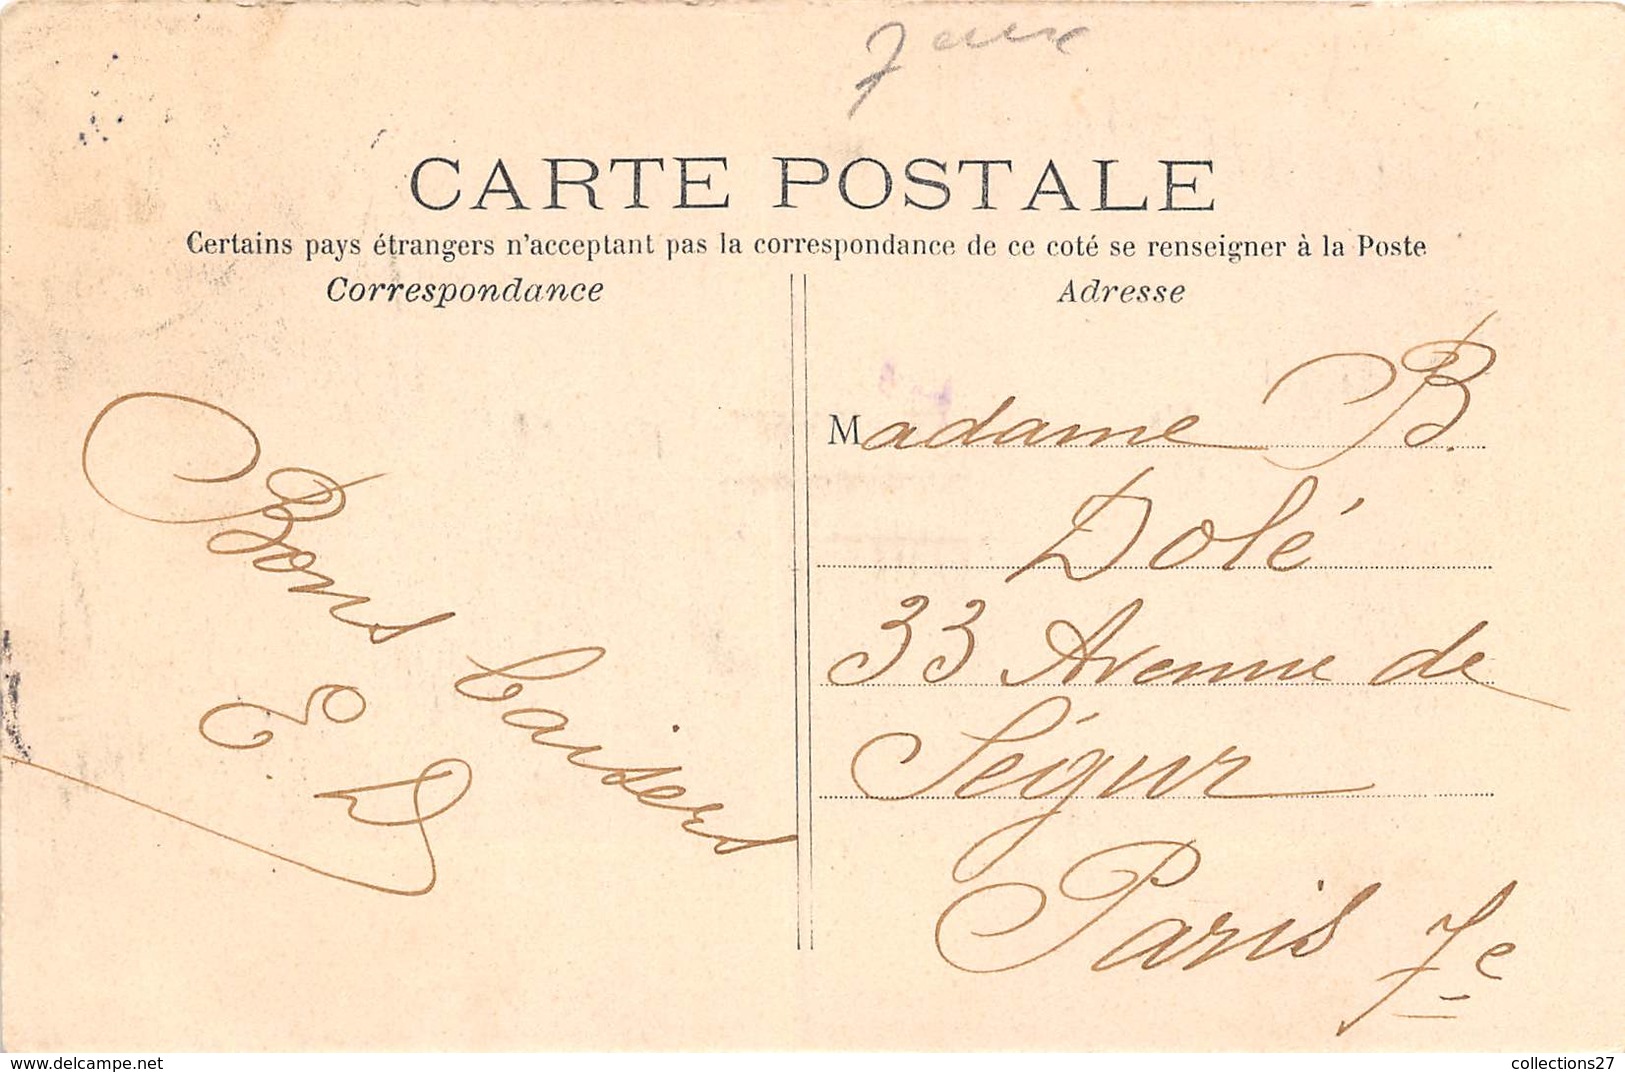 CARTE POSTALE
Certains pays étrangers n'acceptant pas la correspondance de ce coté se renseigner à la Poste
Correspondance
Bons baisers
E. D
Adresse
Madame B.
Dolé
33 Avenue de
Ségur
Paris 7e
delcampe.net
collections27